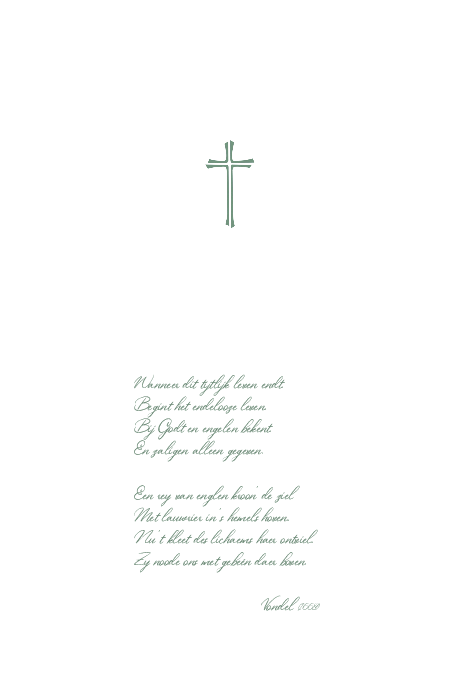 Wanneer dit tytlijk leven endt
Begint het endelooze leven.
Bij Godt en engelen bekent
En zaligen alleen gegeven.
Een rey van englen kroon' de ziel
Met lauwrier in 's hemels hoven.
Nu 't kleet des lichaems haer ontviel.
Zy noode ons met gebeên daer boven.
Vondel